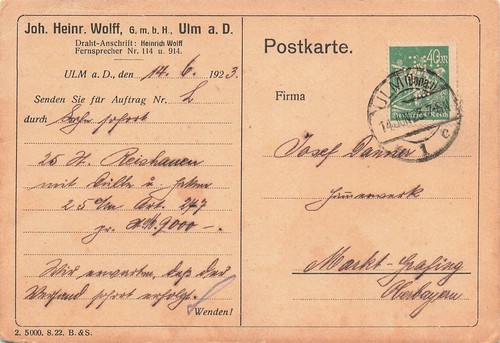 Joh. Heinr. Wolff, G. m. b. H., Ulm a. D.
Draht-Anschrift: Heinrich Wolff
Fernsprecher Nr. 114 u. 914.
ULM a. D., den 14. 6. 1923
Senden Sie für Auftrag Nr. L
durch Bahn sofort
25 St. Reishauen
mit Hülle u.
25 % Art. 247
M. 9000 –.
Wir erwarten, daß der
Versand sofort erfolgt.
Wenden!
2. 5000. 8. 22. B. & S.
Postkarte.
40 M
Deutsches Reich
ULM
(Donau)
1 c
Firma
Josef Danner
Hammerwerk
Markt-Grafing
Oberbayern